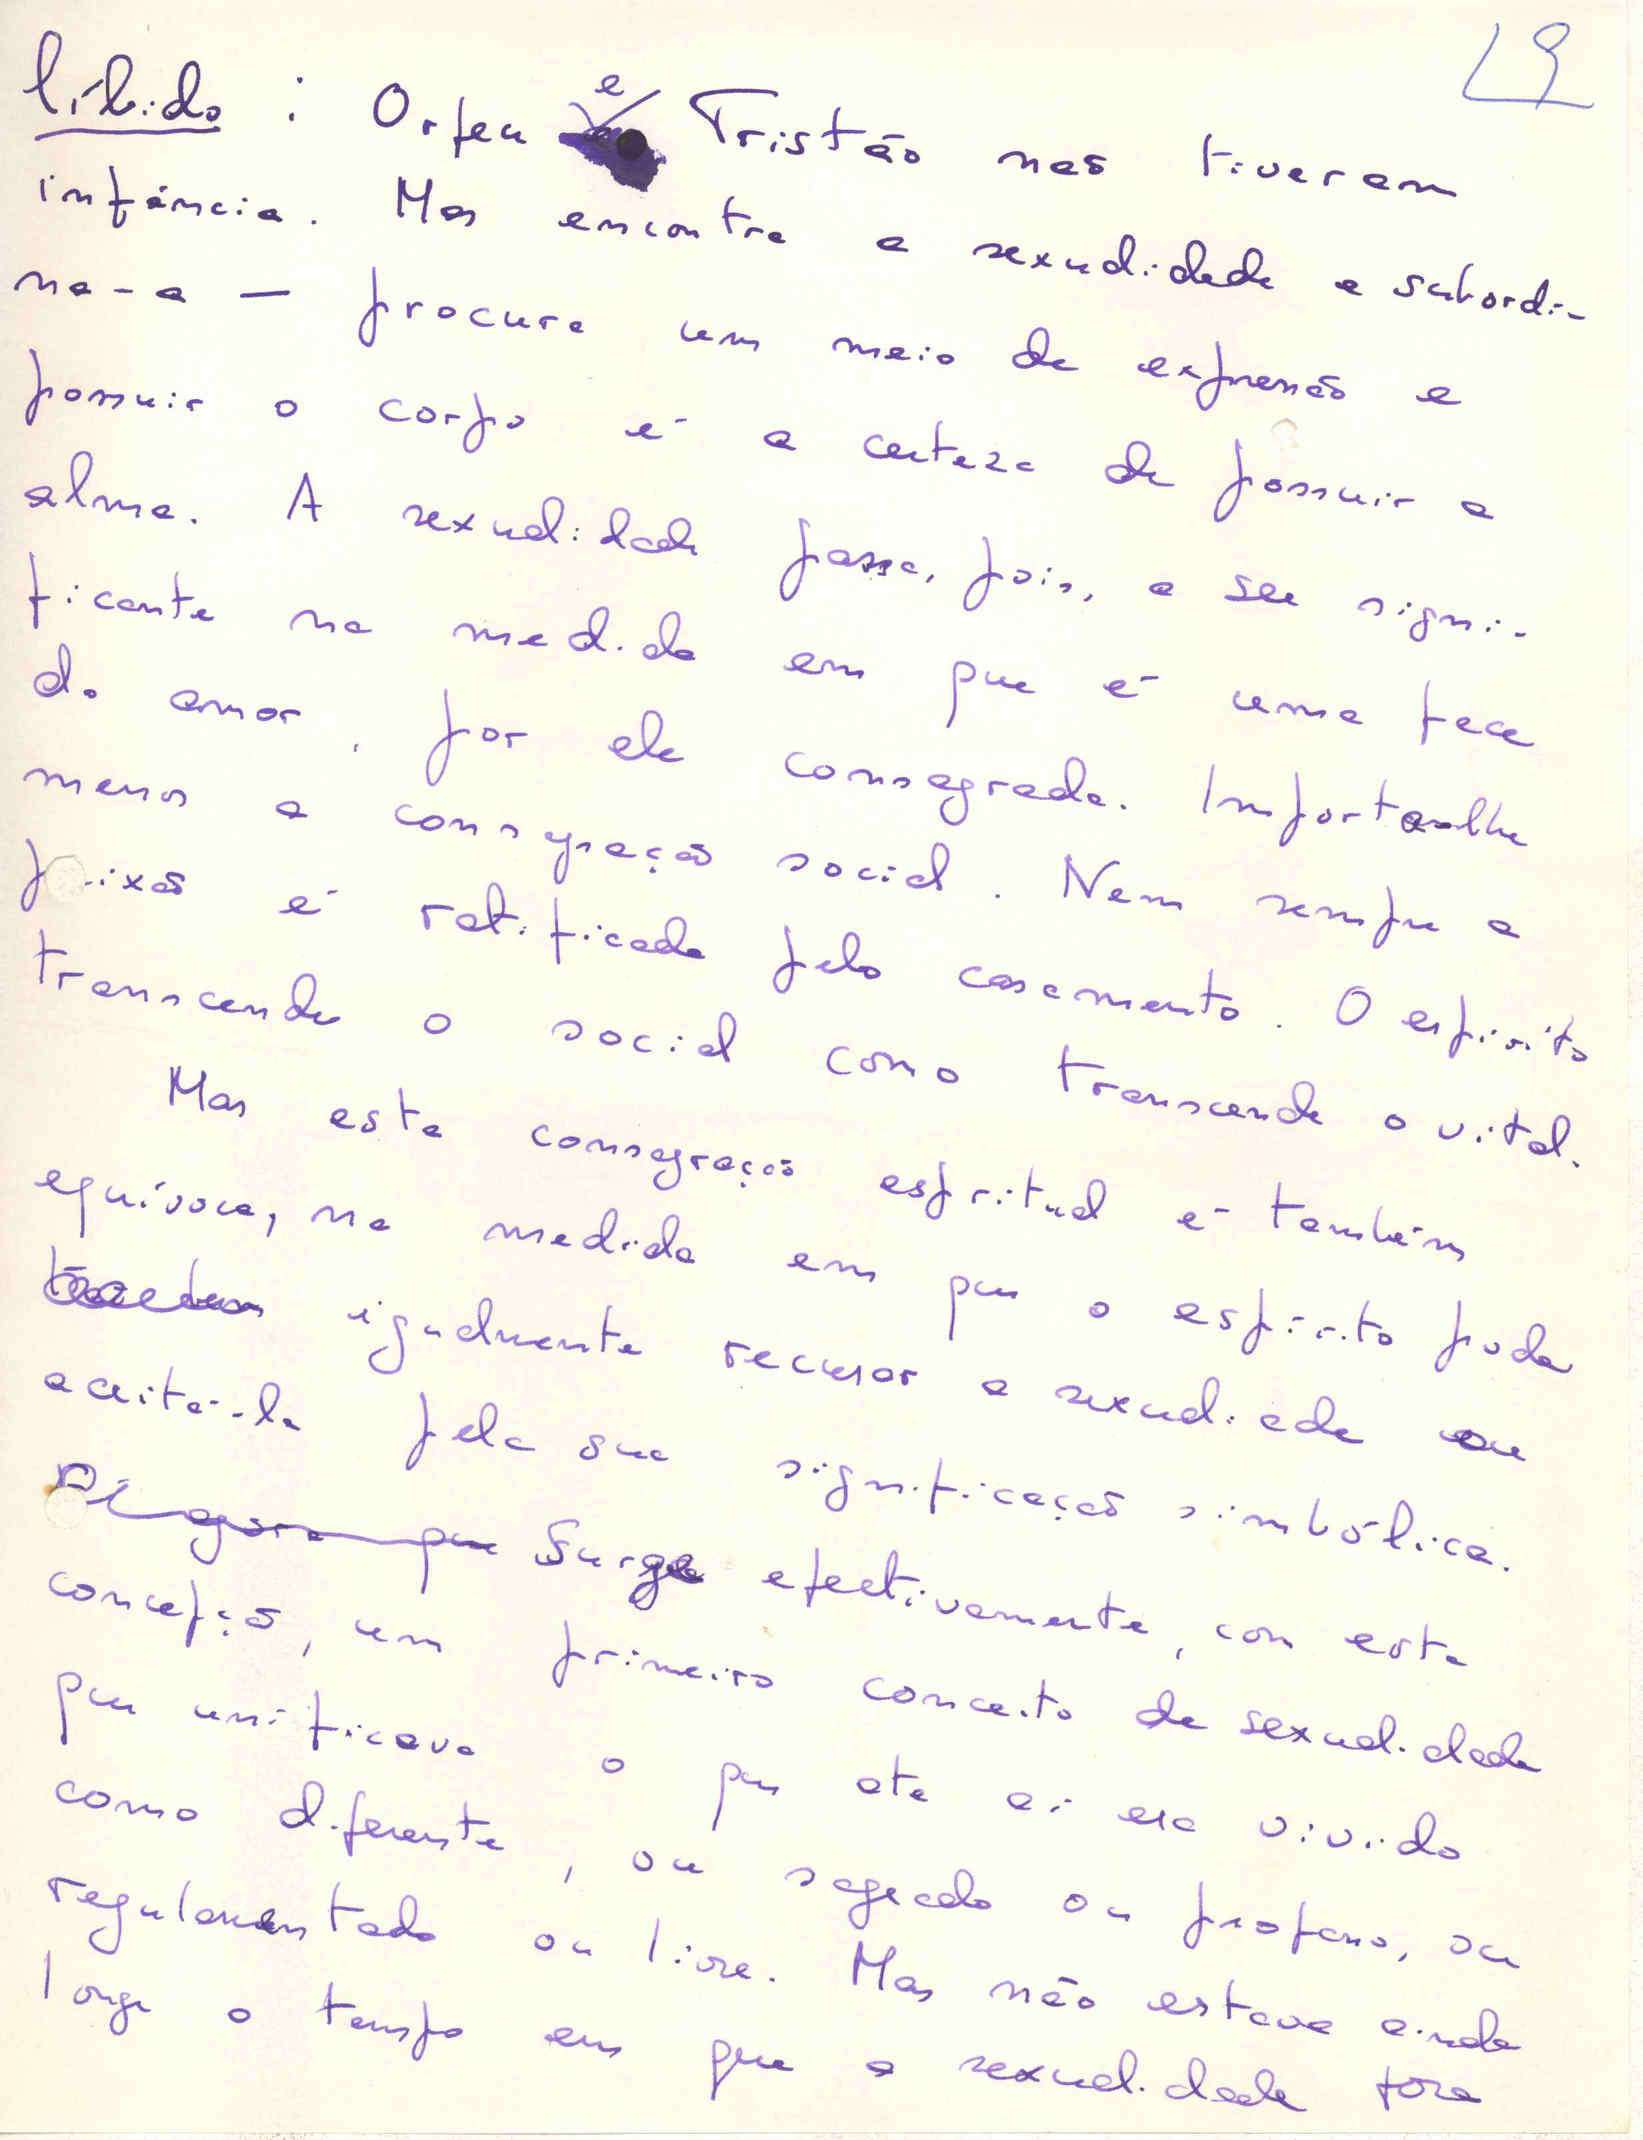 L9
líbido : Orfeu e Tristão nas tiveram
infância. Mas encontra a sexualidade e subordi-
na-a — procura um meio de expressão e
possuir o corpo é a certeza de possuir a
alma. A sexualidade passa, pois, a ser signi-
ficante na medida em que é uma face
do amor, por ele consagrada. Importa-lhe
menos a consagração social. Nem sempre a
paixão é ratificada pelo casamento. O espírito
transcende o social como transcende o vital.
Mas esta consagração espiritual é também
equívoca, na medida em que o espírito pode
igualmente recusar a sexualidade ou
aceitá-la pela sua significação simbólica.
agora que Surge efectivamente, com esta
concepção, um primeiro conceito de sexualidade
que unificava o que até aí era vivido
como diferente, ou sagrado ou profano, ou
regulamentado ou livre. Mas não estava ainda
longe o tempo em que a sexualidade fora